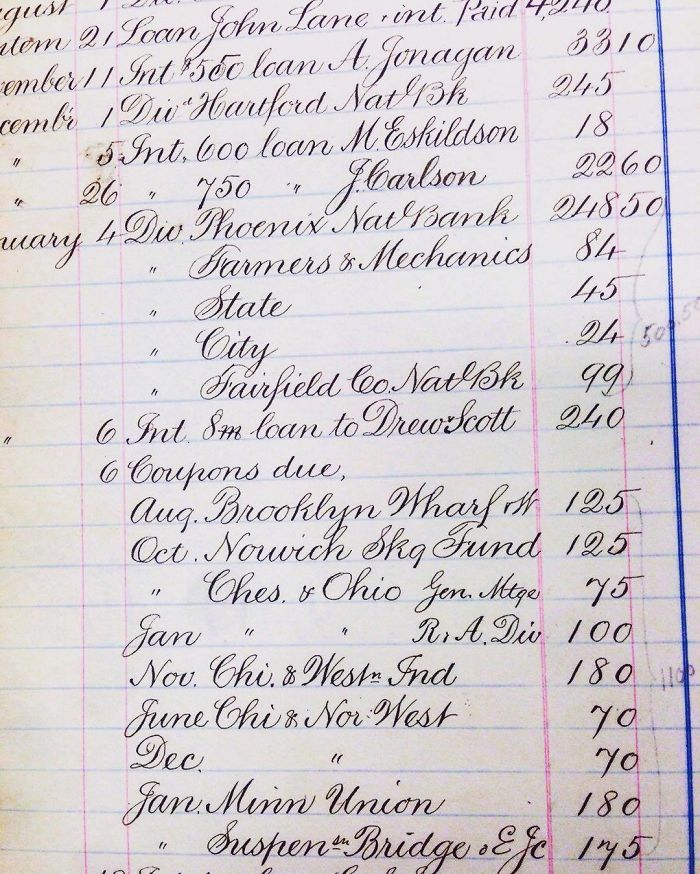 gust 1 Div.
tem 21 Loan John Lane & int. Paid 4,240
vember 11 Int $550 loan A. Jonagan 33 10
cemb'r 1 Div'd Hartford Nat'l Bk 245
" 5 Int. 600 loan M. Eskildson 18
" 26 " 750 " J. Carlson 22 60
nuary 4 Div. Phoenix Nat'l Bank 248 50
" Farmers & Mechanics 84
" State 45
" City 24
" Fairfield Co. Nat'l Bk 99
" 6 Int. 8m loan to Drew & Scott 240
6 Coupons due,
Aug. Brooklyn Wharf & W 125
Oct. Norwich Skg Fund 125
" Ches. & Ohio Gen. Mtge 75
Jan " " R & A. Div 100
Nov. Chi. & Westn Ind 180
June Chi & Nor. West 70
Dec. " 70
Jan. Minn Union 180
" Suspensn Bridge & E Jc 175
1100